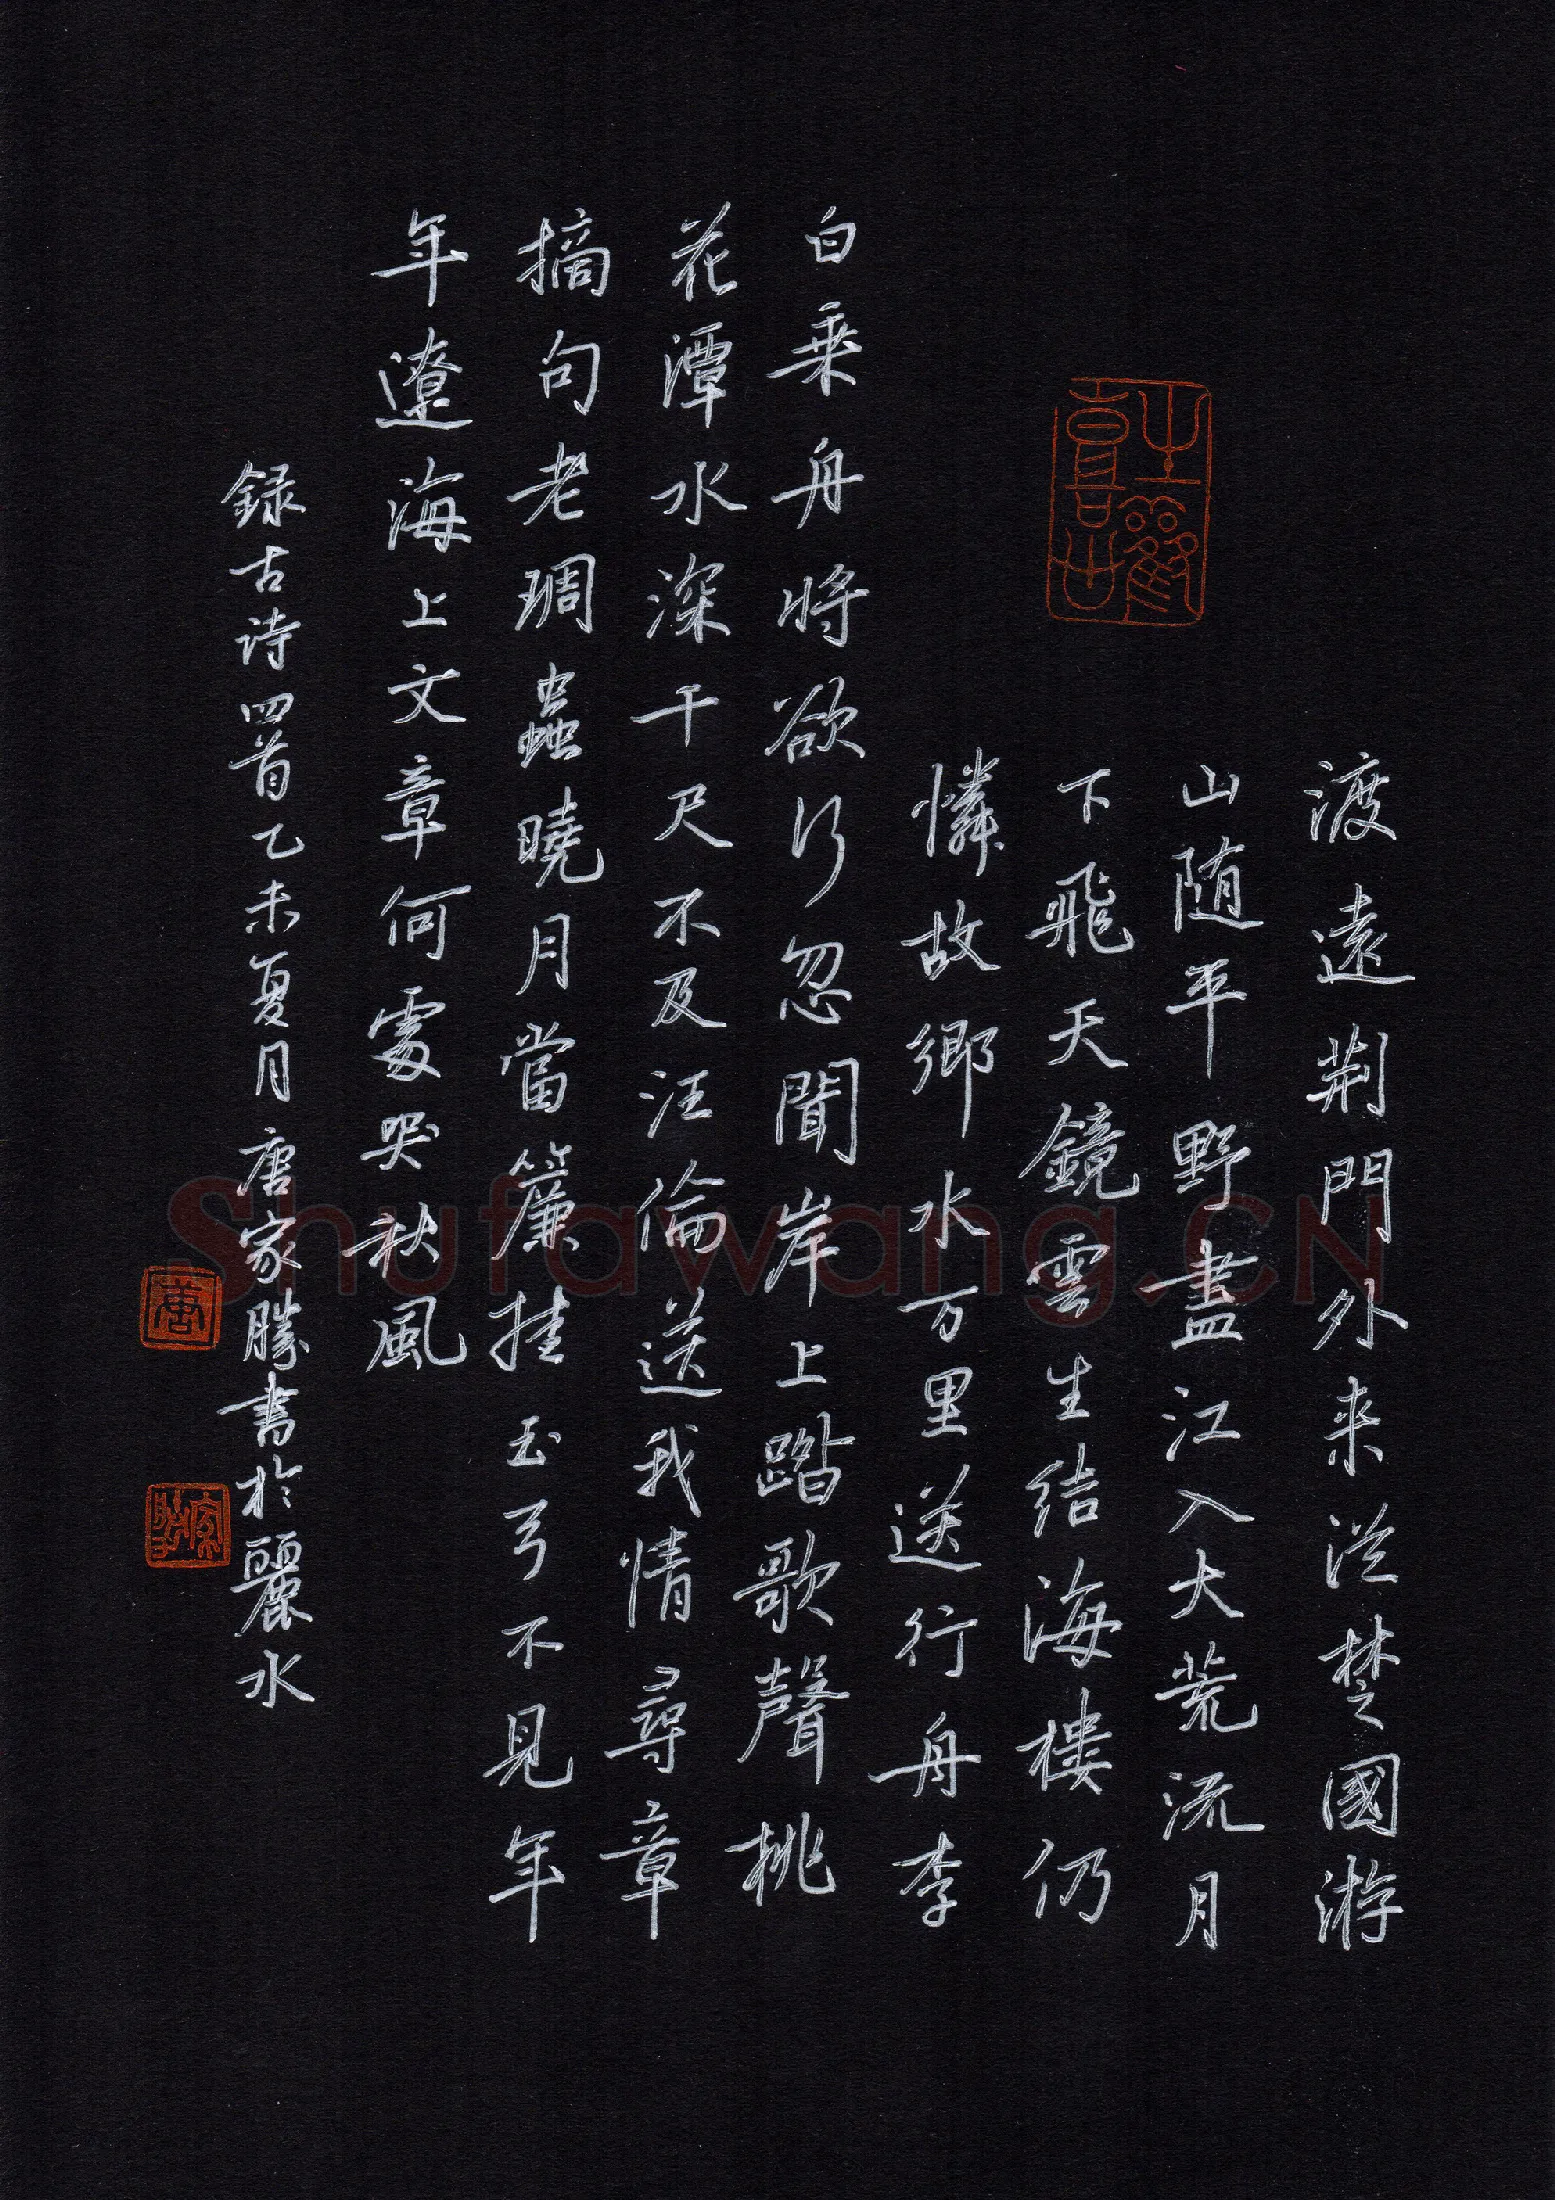 渡遠荆門外来従楚國游
山随平野盡江入大荒流月
下飛天鏡雲生結海樓仍
憐故鄉水万里送行舟李
白乘舟將欲行忽聞岸上踏歌聲桃
花潭水深千尺不及汪倫送我情尋章
摘句老琱蟲曉月當簾挂玉弓不見年
年遼海上文章何處哭秋風
録古诗四首乙未夏月唐家勝書於麗水
唐
Shufawang.CN